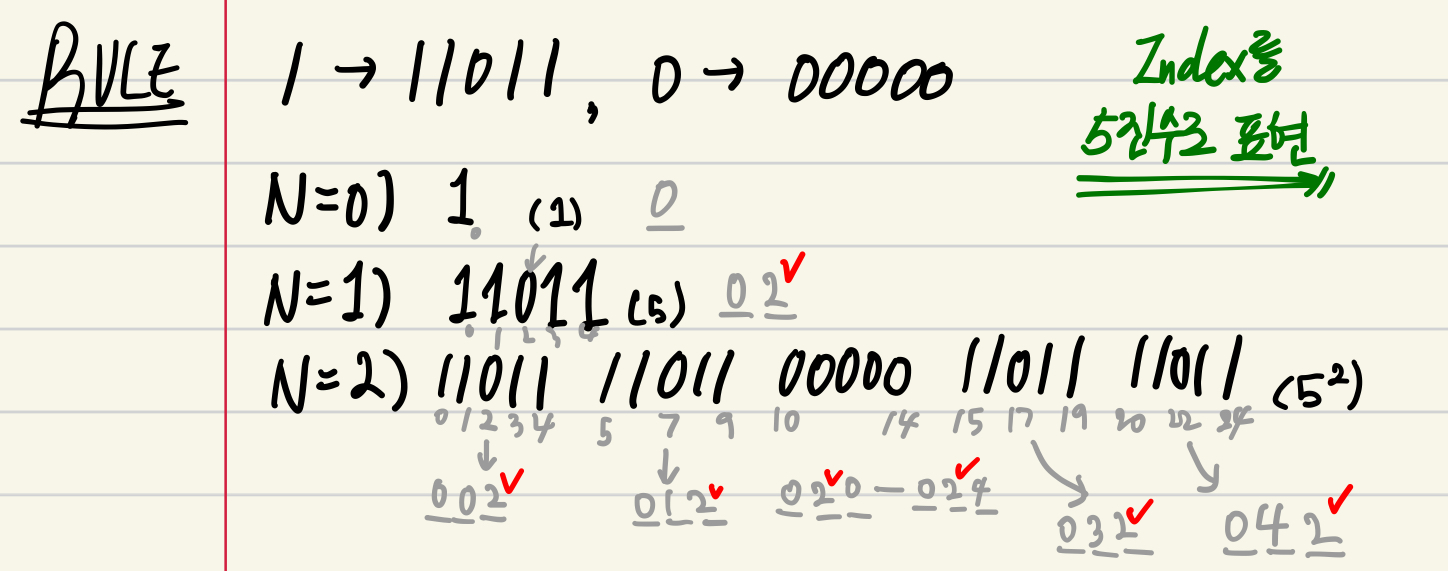 RULE 1 → 11011, 0 → 00000
Index를
5진수로 표현
N=0) 1 (1) 0
0
N=1) 11011 (5) 02
0 1 2 3 4
N=2) 11011 11011 00000 11011 11011 (5²)
0 1 2 3 4 5 7 9 10 14 15 17 19 20 22 24
002 012 020 - 024 032 042